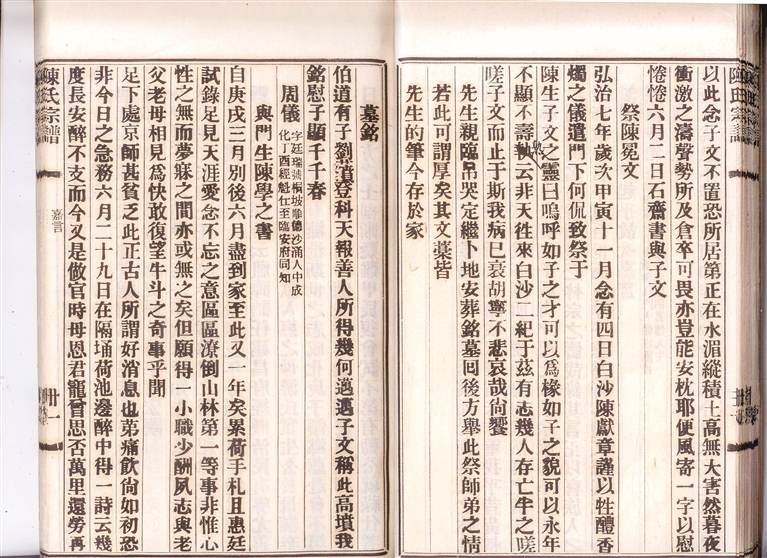 以此念子文不置恐所居第正在水湄縱積土高無大害然暮夜
衝激之濤聲勢所及倉卒可畏亦豈能安枕耶便風寄一字以慰
惓惓六月二日石齋書與子文
祭陳冕文
弘治七年歲次甲寅十一月念有四日白沙陳獻章謹以牲醴香
燭之儀遣門下何侃致祭于
陳生子文之靈曰嗚呼如子之才可以為椽如子之貌可以永年
不顯不壽孰云非天徃來白沙二紀于茲有志幾人存亡牛之嗟
嗟子文而止于斯我病已衰胡寧不悲哀哉尙饗
先生親臨吊哭定繼卜地安葬銘墓囘後方舉此祭師弟之情
若此可謂厚矣其文藁皆
先生的筆今存於家
墓銘
伯道有子劉蕡登科天報善人所得幾何邁邁子文稱此高墳我
銘慰子顯千千春
周儀
字廷瑞號桐坡順德沙涌人中成
化丁酉經魁仕至臨安府同知
與門生陳學之書
自庚戌三月別後六月盡到家至此又一年矣累荷手札且惠廷
試錄足見天涯愛念不忘之意區區潦倒山林第一等事非惟心
性之無而夢寐之間亦或無之矣但願得一小職少酬夙志與老
父老母相見為快敢復望牛斗之奇事乎聞
足下處京師甚貧乏此正古人所謂好消息也苐痛飲尙如初恐
非今日之急務六月二十九日在隔埇荷池邊醉中得一詩云幾
度長安醉不支而今又是倣官時母恩君寵曾思否萬里還勞再
陳氏宗譜
嘉言
卅一